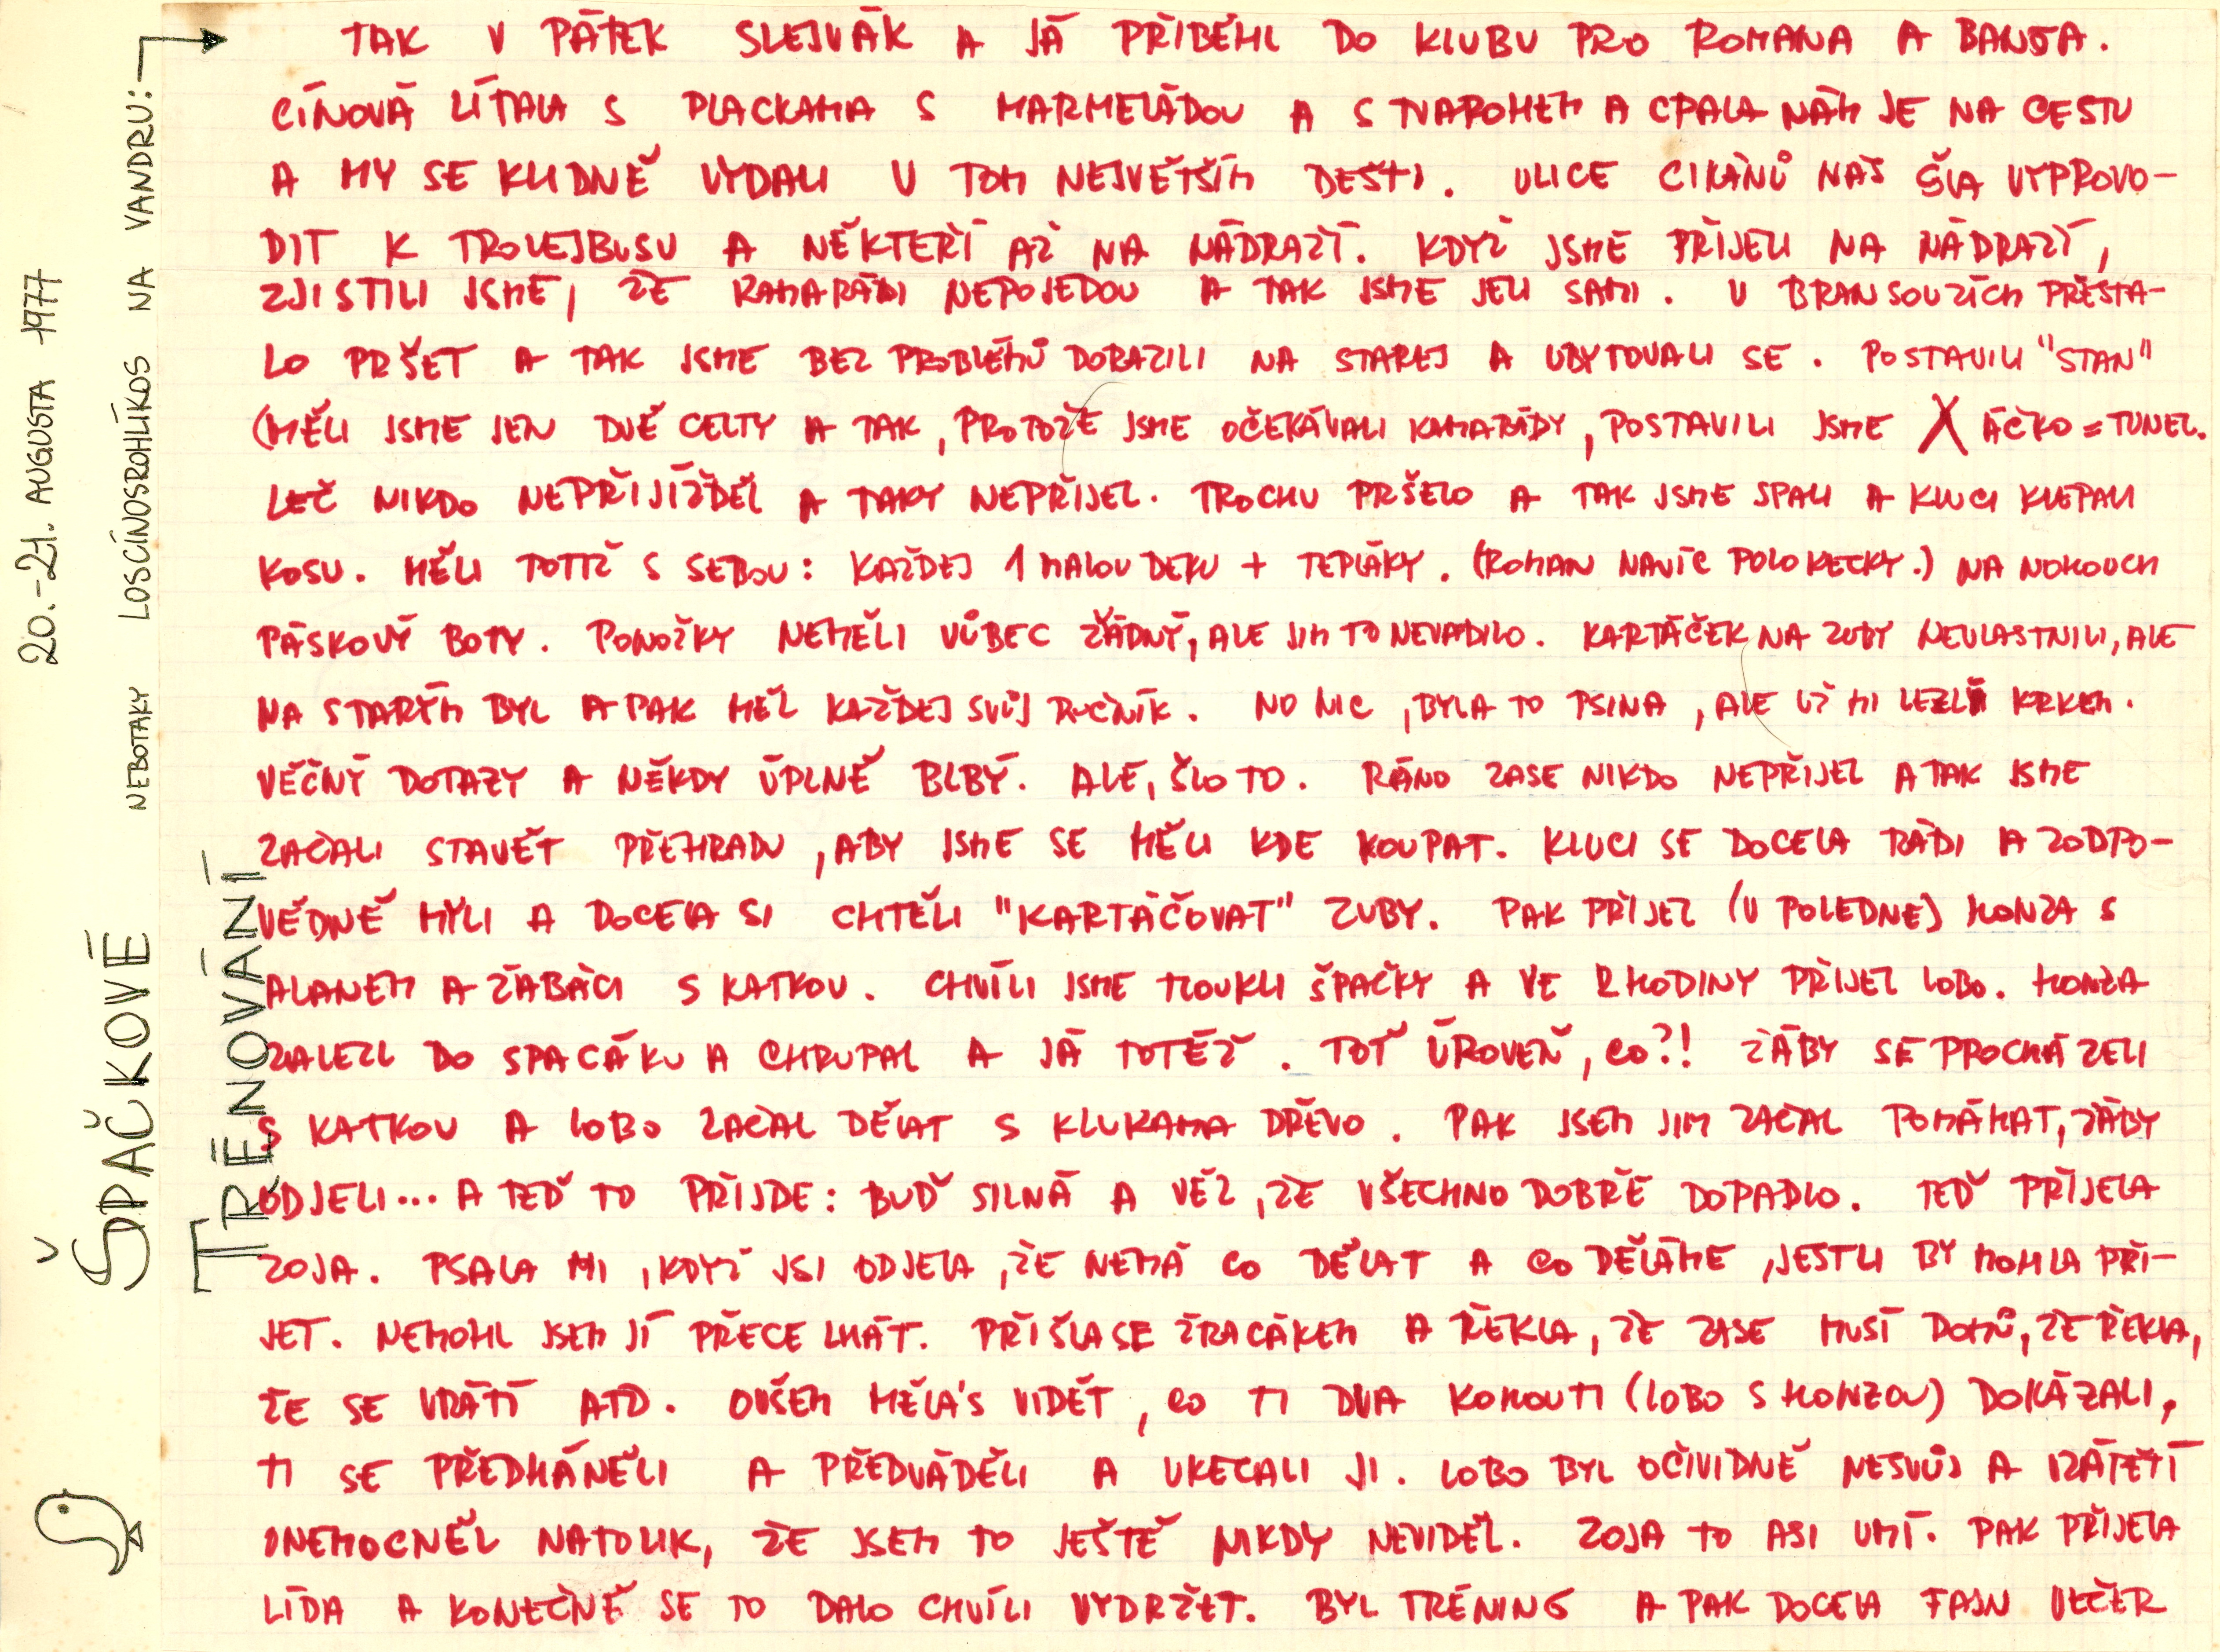 20.-21. AUGUSTA 1977
ŠPAČKOVÉ
TRÉNOVÁNÍ
NEBOTAKY LOSCÍNOSROHLÍKOS NA VANDRU:
TAK V PÁTEK SLEJVÁK A JÁ PŘIBĚHL DO KLUBU PRO ROMANA A BANJA.
CÍNOVÁ LÍTALA S PLACKAMA S MARMELÁDOU A S TVAROHEM A CPALA NÁM JE NA CESTU
A MY SE KLIDNĚ VYDALI V TOM NEJVĚTŠÍM DEŠTI. ULICE CIKÁNŮ NÁS ŠLA VYPROVO-
DIT K TROLEJBUSU A NĚKTEŘÍ AŽ NA NÁDRAŽÍ. KDYŽ JSME PŘIJELI NA NÁDRAŽÍ,
ZJISTILI JSME, ŽE KAMARÁDI NEPOJEDOU A TAK JSME JELI SAMI. V BRANSOUZÍCH PŘESTA-
LO PRŠET A TAK JSME BEZ PROBLÉMŮ DORAZILI NA STAREJ A UBYTOVALI SE. POSTAVILI "STAN"
(MĚLI JSME JEN DVĚ CELTY A TAK, PROTOŽE JSME OČEKÁVALI KAMARÁDY, POSTAVILI JSME ÁČKO = TUNEL.
LEČ NIKDO NEPŘIJÍŽDĚL A TAKY NEPŘIJEL. TROCHU PRŠELO A TAK JSME SPALI A KLUCI KLEPALI
KOSU. MĚLI TOTIŽ S SEBOU: KAŽDEJ 1 MALOU DEKU + TEPLÁKY. (ROMAN NAVÍC POLOKECKY.) NA NOHOUCH
PÁSKOVÝ BOTY. PONOŽKY NEMĚLI VŮBEC ŽÁDNÝ, ALE JIM TO NEVADILO. KARTÁČEK NA ZUBY NEVLASTNILI, ALE
NA STARÝM BYL A PAK MĚL KAŽDEJ SVŮJ RUČNÍK. NO NIC, BYLA TO PSINA, ALE UŽ MI LEZLI KRKEM.
VĚČNÝ DOTAZY A NĚKDY ÚPLNĚ BLBÝ. ALE, ŠLO TO. RÁNO ZASE NIKDO NEPŘIJEL A TAK JSME
ZAČALI STAVĚT PŘEHRADU, ABY JSME SE MĚLI KDE KOUPAT. KLUCI SE DOCELA RÁDI A ZODPO-
VĚDNĚ MYLI A DOCELA SI CHTĚLI "KARTÁČOVAT" ZUBY. PAK PŘIJEL (V POLEDNE) HONZA S
ALANEM A ŽÁBÁCI S KATKOU. CHVÍLI JSME TLOUKLI ŠPAČKY A VE 2 HODINY PŘIJEL LOBO. HONZA
ZALEZL DO SPACÁKU A CHRUPAL A JÁ TOTÉŽ. TOŤ ÚROVEŇ, CO?! ŽÁBY SE PROCHÁZELI
S KATKOU A LOBO ZAČAL DĚLAT S KLUKAMA DŘEVO. PAK JSEM JIM ZAČAL POMÁHAT, ŽÁBY
ODJELI... A TEĎ TO PŘIJDE: BUĎ SILNÁ A VĚŽ, ŽE VŠECHNO DOBŘE DOPADLO. TEĎ PŘIJELA
ZOJA. PSALA MI, KDYŽ JSI ODJELA, ŽE NEMÁ CO DĚLAT A CO DĚLÁME, JESTLI BY MOHLA PŘI-
JET. NEMOHL JSEM JÍ PŘECE LHÁT. PŘIŠLA SE ŽRACÁKEM A ŘEKLA, ŽE ZASE MUSÍ DOMŮ, ŽE ŘEKLA,
ŽE SE VRÁTÍ ATD. OVŠEM MĚLA'S VIDĚT, CO TI DVA KOHOUTI (LOBO S HONZOU) DOKÁZALI,
TI SE PŘEDHÁNĚLI A PŘEDVÁDĚLI A UKECALI JI. LOBO BYL OČIVIDNĚ NESVŮJ A VZÁPĚTÍ
ONEMOCNĚL NATOLIK, ŽE JSEM TO JEŠTĚ NIKDY NEVIDĚL. ZOJA TO ASI UMÍ. PAK PŘIJELA
LÍDA A KONEČNĚ SE TO DALO CHVÍLI VYDRŽET. BYL TRÉNING A PAK DOCELA FAJN VEČER